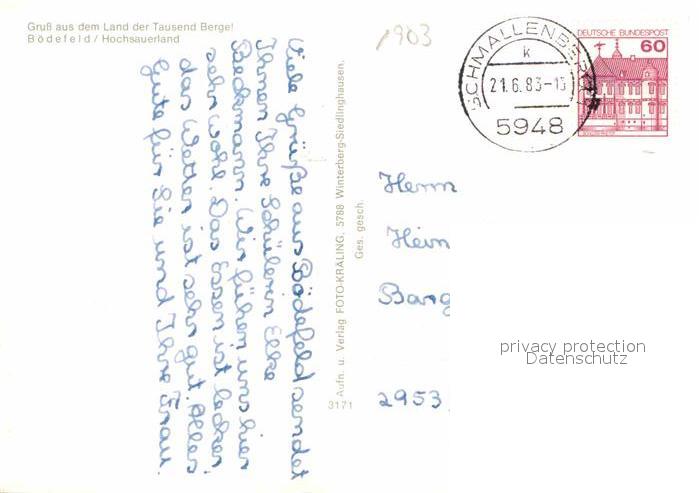 Gruß aus dem Land der Tausend Berge!
Bödefeld / Hochsauerland
1903
SCHMALLENBERG
k
21.6.83-13
5948
DEUTSCHE BUNDESPOST
60
Viele Grüße aus Bödefeld sendet
Ihnen Ihre Schülerin Elke
Beckmann. Wir fühlen uns hier
sehr wohl. Das Essen ist lecker,
das Wetter ist sehr gut. Alles
Gute für Sie und Ihre Frau.
Aufn. u. Verlag FOTO-KRÄLING, 5788 Winterberg-Siedlinghausen.
Ges. gesch.
3171
Herrn
Hein
Bang
2953
privacy protection
Datenschutz